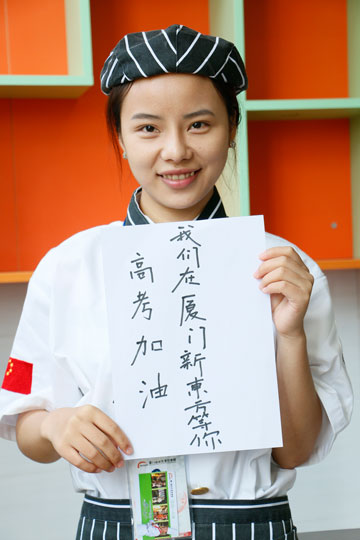 我们在厦门新東方等你
高考加油